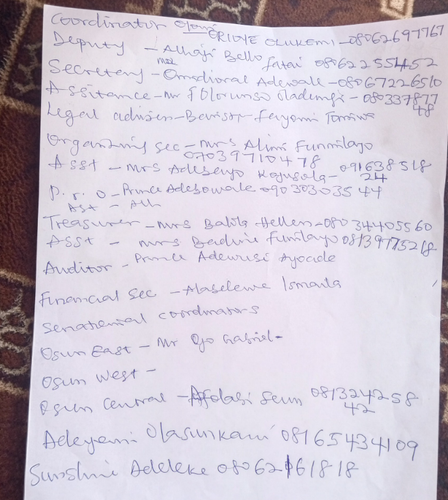 Coordinator ERIOYE OLUKEMI - 08062697767
Deputy - Alhaji Bello fatai 08062255452
Secretary - Adewale - 08067226510
Assitance - Mr 080337877
48
Legal adviser - Baristr
Organizing Sec - Mrs Alimi Funmilayo
07039710478
Asst - Mrs Adeseyo - 091638518
24
P. r. o - Prince Adesowale 09030303544
Ast -
Treasurer - Mrs Hellen - 08034405560
Asst - Mrs funmilayo 08139775218
Auditor - Prince Ayoade
Financial Sec - Ismaila
Senatorial coordinators
Osun East - Mr Ojo Gabriel -
Osun West -
Osun Central - Afolabi Seun 081324258
42
Adeyemi Olasunkanmi 08165434109
Sunshine Adeleke 08062161818